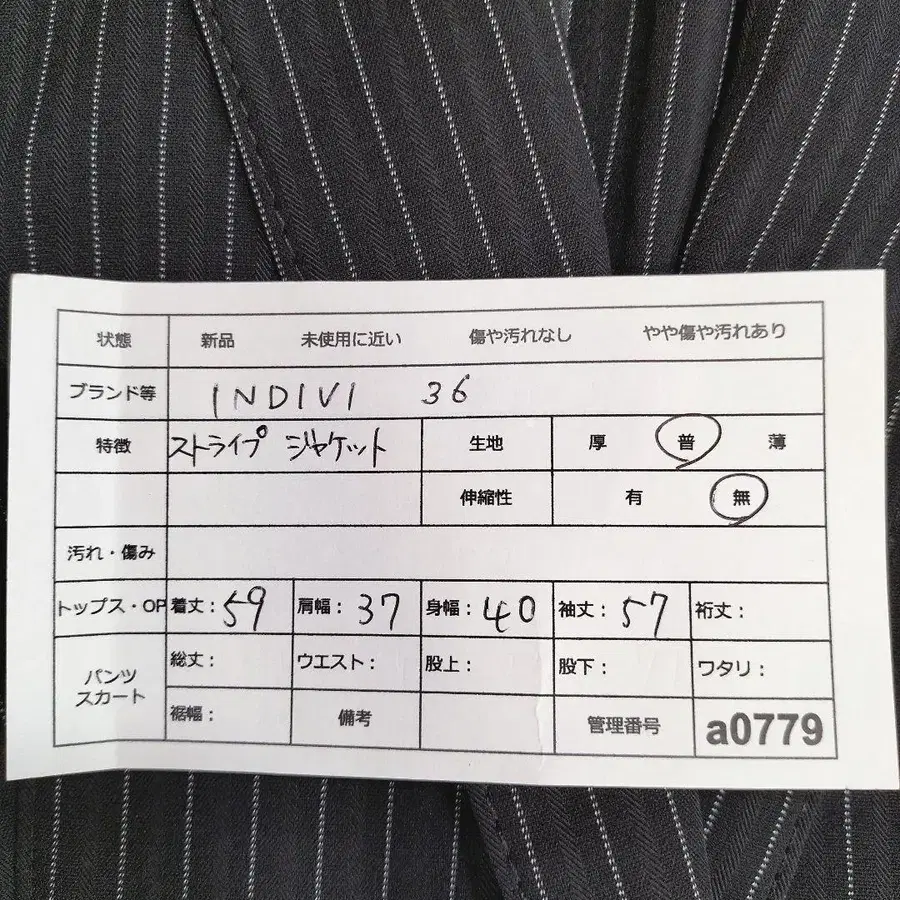 状態 新品 未使用に近い 傷や汚れなし やや傷や汚れあり
ブランド等 INDIVI 36
特徴 ストライプ ジャケット 生地 厚 普 薄
伸縮性 有 無
汚れ・傷み
トップス・OP 着丈:59 肩幅:37 身幅:40 袖丈:57 裄丈:
パンツ 総丈: ウエスト: 股上: 股下: ワタリ:
スカート
裾幅: 備考 管理番号 a0779